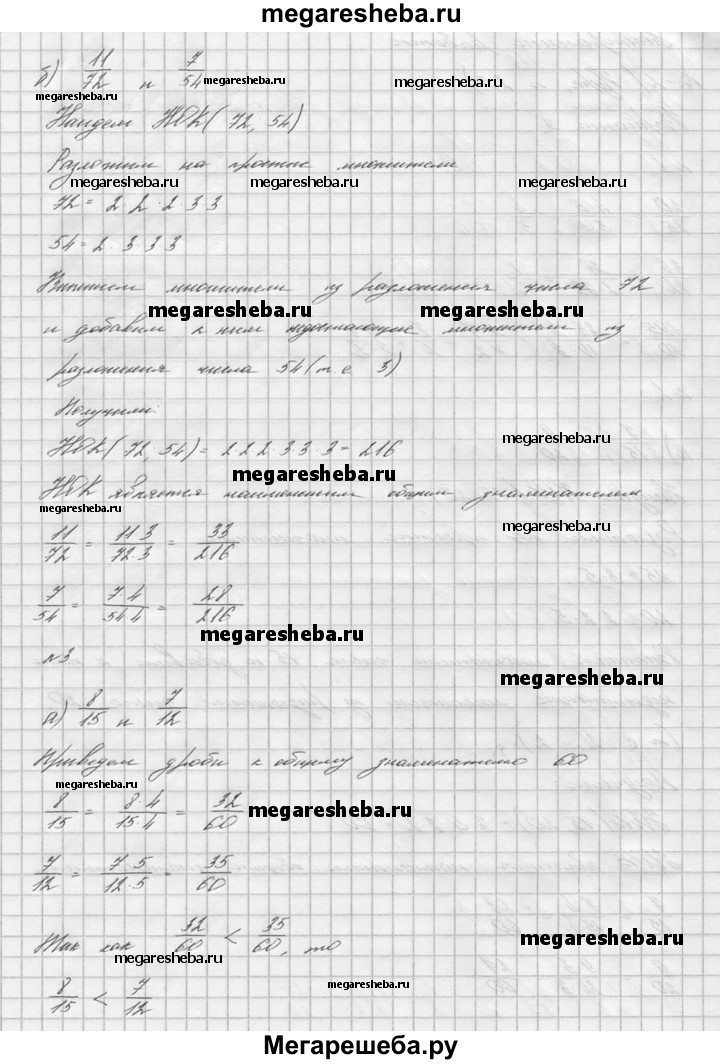 megaresheba.ru
б) 11/72 и 7/54
megaresheba.ru megaresheba.ru
megaresheba.ru
Найдем НОК(72, 54)
Разложим на простые множители
megaresheba.ru megaresheba.ru megaresheba.ru
72 = 2·2·2·3·3
54 = 2·3·3·3
Выпишем множители из разложения числа 72
megaresheba.ru megaresheba.ru
и добавим к ним недостающие множители из
разложения числа 54 (т е 3)
Получим:
megaresheba.ru
НОК(72; 54) = 2·2·2·3·3·3 = 216
megaresheba.ru
НОК является наименьшим общим знаменателем
megaresheba.ru
megaresheba.ru
11/72 = 11·3/72·3 = 33/216
7/54 = 7·4/54·4 = 28/216
megaresheba.ru
№3
megaresheba.ru
а) 8/15 и 7/12
Приведем дроби к общему знаменателю 60
megaresheba.ru
8/15 = 8·4/15·4 = 32/60
megaresheba.ru
7/12 = 7·5/12·5 = 35/60
Так как 32/60 < 35/60, то
megaresheba.ru
megaresheba.ru
8/15 < 7/12
megaresheba.ru
Мегарешеба.ру